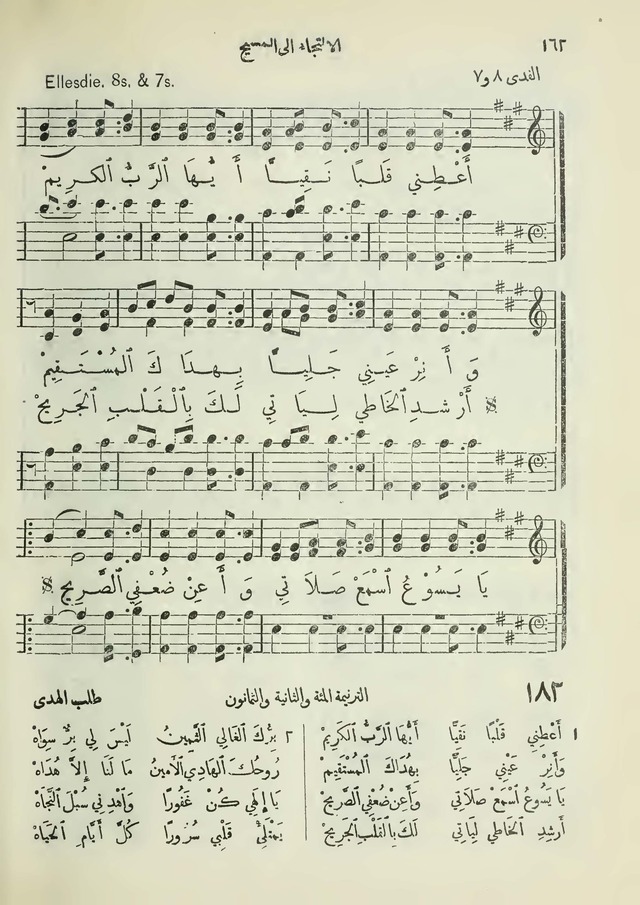 ١٦٢
الالتجاء الى المسيح
الفدى ٨ و٧
Ellesdie. 8s, & 7s.
أَعْطِنِي قَلْبًا نَقِيًّا أَيُّهَا ٱلرَّبُّ ٱلْكَرِيمْ
وَ أَ نِرْ عَيْنِي جَلِيًّا بِهُدَا كَ ٱلْمُسْتَقِيمْ
أَرْشِدِ ٱلْخَاطِي لِيَا تِي لَكَ بِٱلْقَلْبِ ٱلْجَرِيحْ
يَا يَسُوعُ ٱسْمَعْ صَلَا تِي وَ أَ عِنْ ضُعْفِي ٱلصَّرِيحْ
١٨٢
الترنيمة المئة والثانية والثمانون
طلب الهدى
١ أَعْطِنِي قَلْبًا نَقِيًّا أَيُّهَا ٱلرَّبُّ ٱلْكَرِيمْ
وَأَنِرْ عَيْنِي جَلِيًّا بِهُدَاكَ ٱلْمُسْتَقِيمْ
يَا يَسُوعُ ٱسْمَعْ صَلَاتِي وَأَعِنْ ضُعْفِي ٱلصَّرِيحْ
أَرْشِدِ ٱلْخَاطِي لِيَاتِي لَكَ بِٱلْقَلْبِ ٱلْجَرِيحْ
٢ بِرُّكَ ٱلْغَالِي ٱلثَّمِينُ لَيْسَ لِي بِرٌّ سِوَاهْ
رُوحُكَ ٱلْهَادِي ٱلْأَمِينُ مَا لَنَا إِلَّا هُدَاهْ
يَا إِلٰهِي كُنْ غَفُورًا وَٱهْدِنِي سُبْلَ ٱلنَّجَاهْ
يَمْتَلِئْ قَلْبِي سُرُورًا كُلَّ أَيَّامِ ٱلْحَيَاهْ